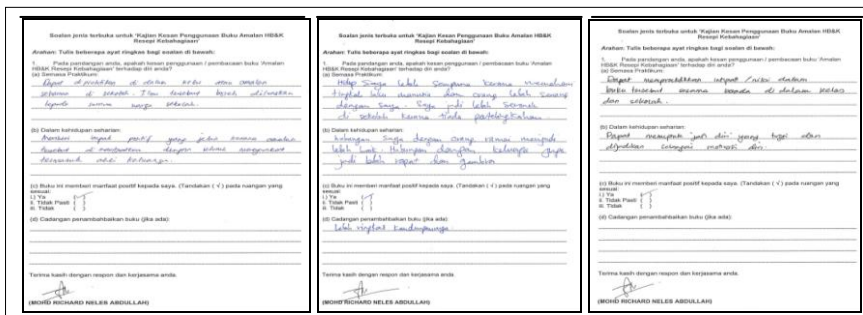 Soalan jenis terbuka untuk 'Kajian Kesan Penggunaan Buku Amalan HB&K
Resepi Kebahagiaan'
Arahan: Tulis beberapa ayat ringkas bagi soalan di bawah:
1. Pada pandangan anda, apakah kesan penggunaan / pembacaan buku 'Amalan
HB&K Resepi Kebahagiaan' terhadap diri anda?
(a) Semasa Praktikum:
Dapat di praktikkan di dalam
seharian di sekolah.
kepada semua warga sekolah.
(b) Dalam kehidupan seharian:
Memberi impak positif yang jelas kerana amalan
tersebut di
termasuk ahli keluarga.
(c) Buku ini memberi manfaat positif kepada saya. (Tandakan ( √ ) pada ruangan yang
sesuai:
i.) Ya ( √ )
ii. Tidak Pasti ( )
iii. Tidak ( )
(d) Cadangan penambahbaikan buku (jika ada)
Terima kasih dengan respon dan kerjasama anda.
(MOHD RICHARD NELES ABDULLAH)
Soalan jenis terbuka untuk 'Kajian Kesan Penggunaan Buku Amalan HB&K
Resepi Kebahagiaan'
Arahan: Tulis beberapa ayat ringkas bagi soalan di bawah:
1. Pada pandangan anda, apakah kesan penggunaan / pembacaan buku 'Amalan
HB&K Resepi Kebahagiaan' terhadap diri anda?
(a) Semasa Praktikum:
Hidup saya lebih sempurna kerana memahami
tingkah laku manusia dan orang lebih senang
dengan saya. Saya jadi lebih seronok
di sekolah kerana tiada
(b) Dalam kehidupan seharian:
hubungan saya dengan orang ramai menjadi
lebih baik. Hubungan dengan keluarga juga
jadi lebih rapat dan gembira
(c) Buku ini memberi manfaat positif kepada saya. (Tandakan ( √ ) pada ruangan yang
sesuai:
i.) Ya ( √ )
ii. Tidak Pasti ( )
iii. Tidak ( )
(d) Cadangan penambahbaikan buku (jika ada)
Lebih ringkas kandungannya.
Terima kasih dengan respon dan kerjasama anda.
(MOHD RICHARD NELES ABDULLAH)
Soalan jenis terbuka untuk 'Kajian Kesan Penggunaan Buku Amalan HB&K
Resepi Kebahagiaan'
Arahan: Tulis beberapa ayat ringkas bagi soalan di bawah:
1. Pada pandangan anda, apakah kesan penggunaan / pembacaan buku 'Amalan
HB&K Resepi Kebahagiaan' terhadap diri anda?
(a) Semasa Praktikum:
Dapat mempraktikkan
buku tersebut di dalam kelas
dan sekolah.
(b) Dalam kehidupan seharian:
Dapat jati diri yang tinggi dan
dijadikan motivasi diri
(c) Buku ini memberi manfaat positif kepada saya. (Tandakan ( √ ) pada ruangan yang
sesuai:
i.) Ya ( √ )
ii. Tidak Pasti ( )
iii. Tidak ( )
(d) Cadangan penambahbaikan buku (jika ada)
Terima kasih dengan respon dan kerjasama anda.
(MOHD RICHARD NELES ABDULLAH)